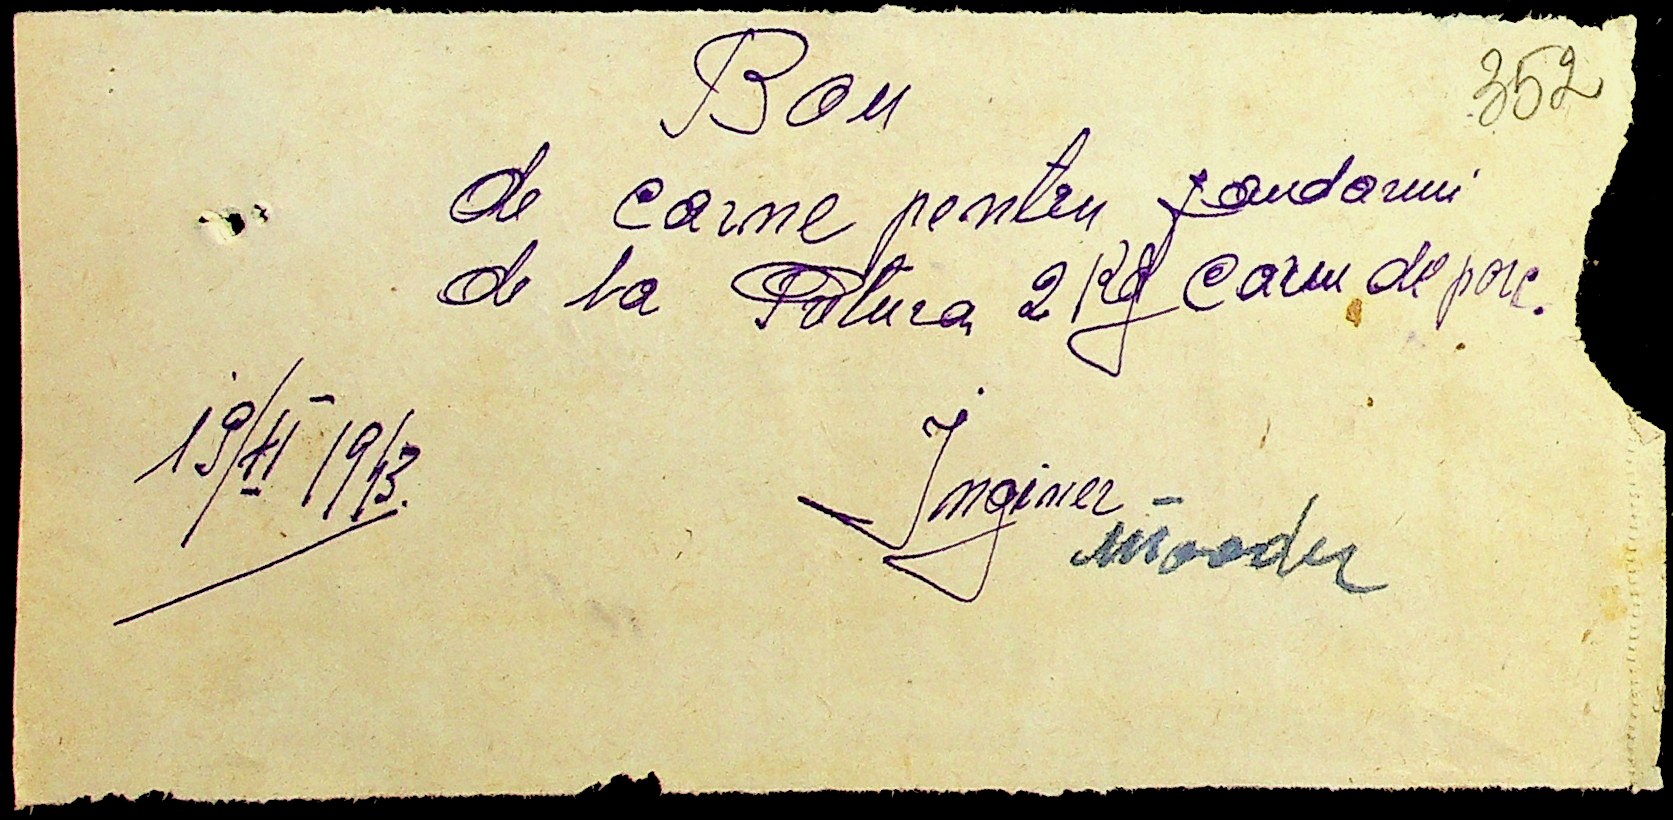 352
Bon
de carne pentru jandarmi
de la Patura 2 Kg carne de porc.
19/XI 1943.
Inginer